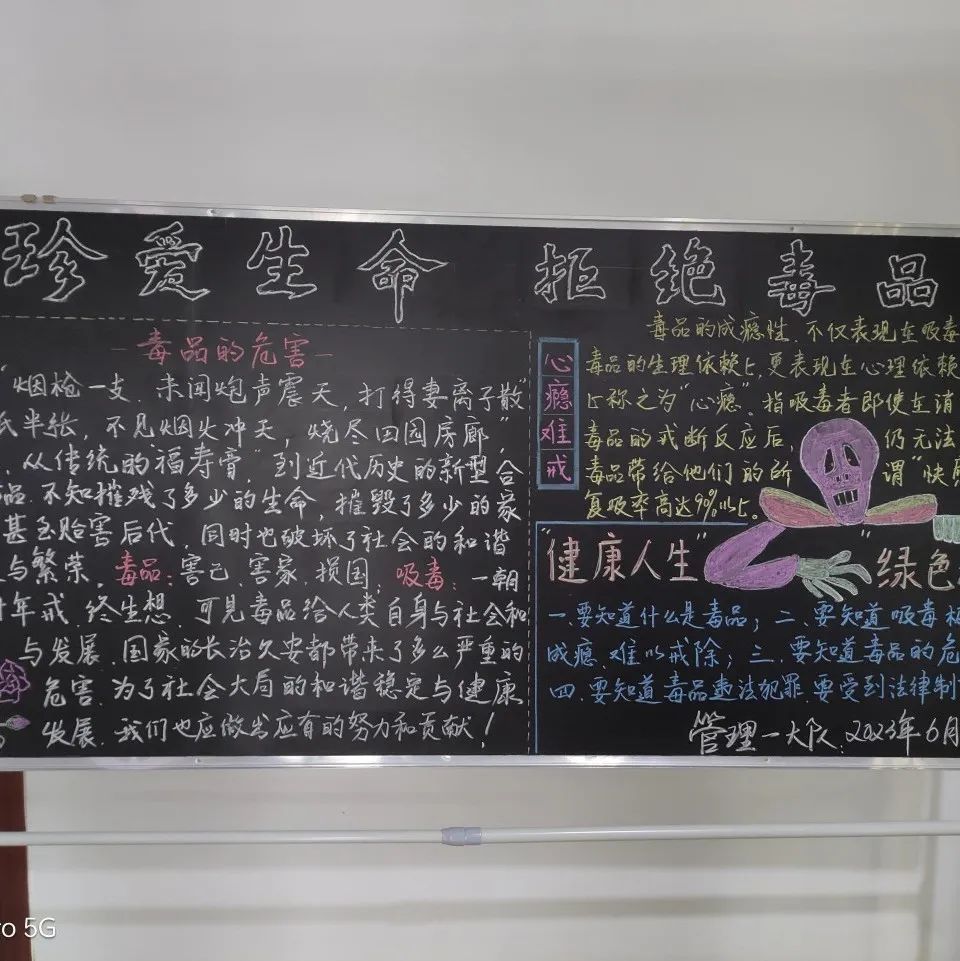 珍爱生命 拒绝毒品
毒品的危害
"烟枪一支,未闻炮声震天,打得妻离子散"
半张,不见烟火冲天,烧尽田园房廊"
,从传统的福寿膏"到近代历史的新型合
品.不知摧残了多少的生命,摧毁了多少的家
甚至贻害后代,同时也破坏了社会的和谐
与繁荣。毒品:害己、害家、损国;吸毒:一朝
年戒、终生想、可见毒品给人类自身与社会和
与发展、国家的长治久安都带来了多么严重的
危害.为了社会大局的和谐稳定与健康
发展、我们也应做出应有的努力和贡献!
心瘾难戒
毒品的成瘾性.不仅表现在吸毒
毒品的生理依赖上,更表现在心理依赖
上称之为"心瘾。指吸毒者即使在消
毒品的戒断反应后, 仍无法
毒品带给他们的所 谓"快
复吸率高达9%以上。
"健康人生" "绿色
一.要知道什么是毒品;二.要知道吸毒极
成瘾、难以戒除;三.要知道毒品的危
四.要知道毒品违法犯罪要受到法律制
管理一大队:2023年6月
ro 5G